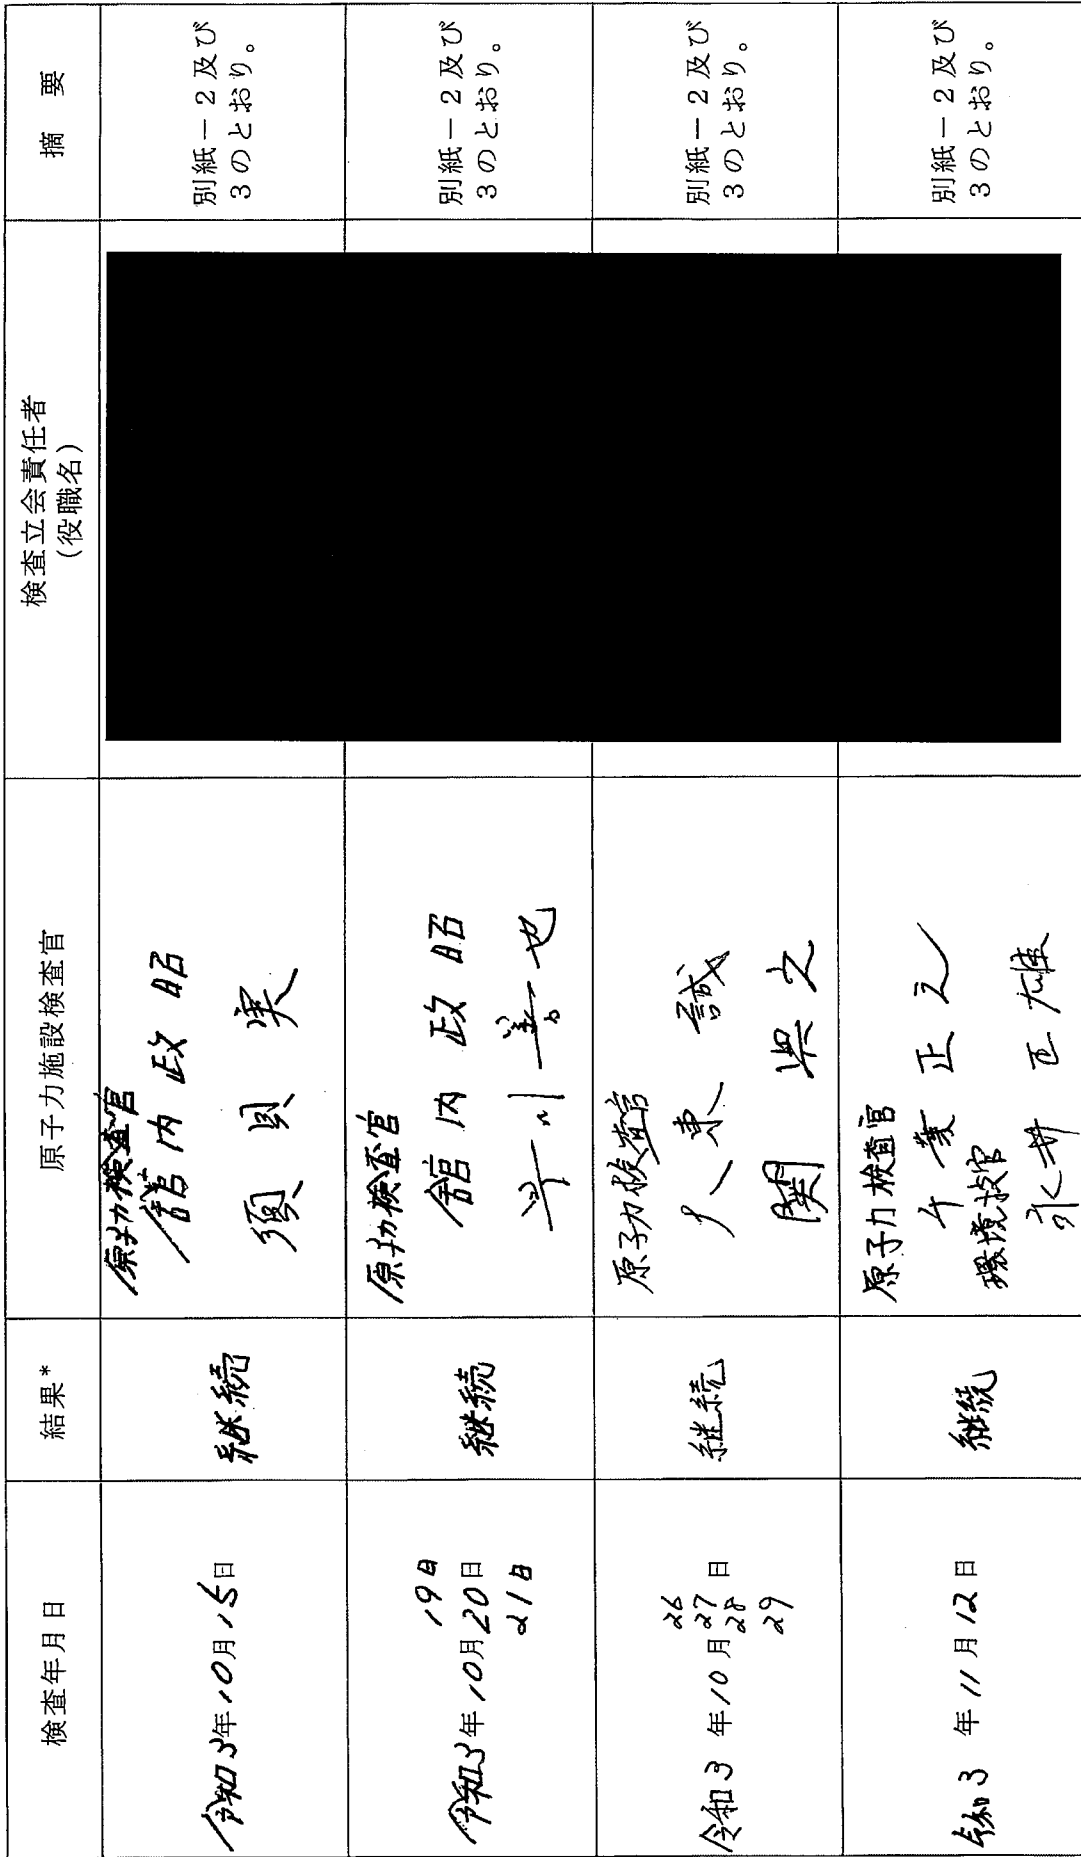 検査年月日
結果*
原子力施設検査官
検査立会責任者
(役職名)
摘 要
令和3年10月15日
継続
原子力検査官
舘内 政昭
須貝 実
別紙-2及び
3のとおり。
令和3年10月19日
20日
21日
継続
原子力検査官
舘内 政昭
善也
別紙-2及び
3のとおり。
令和3年10月26
27日
28
29
継続
原子力検査官
八東 誠
関 之
別紙-2及び
3のとおり。
令和3年11月12日
継続
原子力検査官
千葉 正之
環境技官
永井 正雄
別紙-2及び
3のとおり。